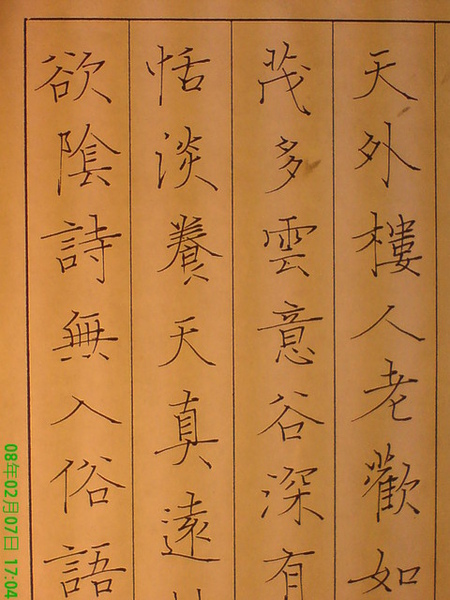 天外樓人老歡如
茂多雲意谷深有
恬淡養天真遠
欲陰詩無入俗語
08年02月07日 17:04